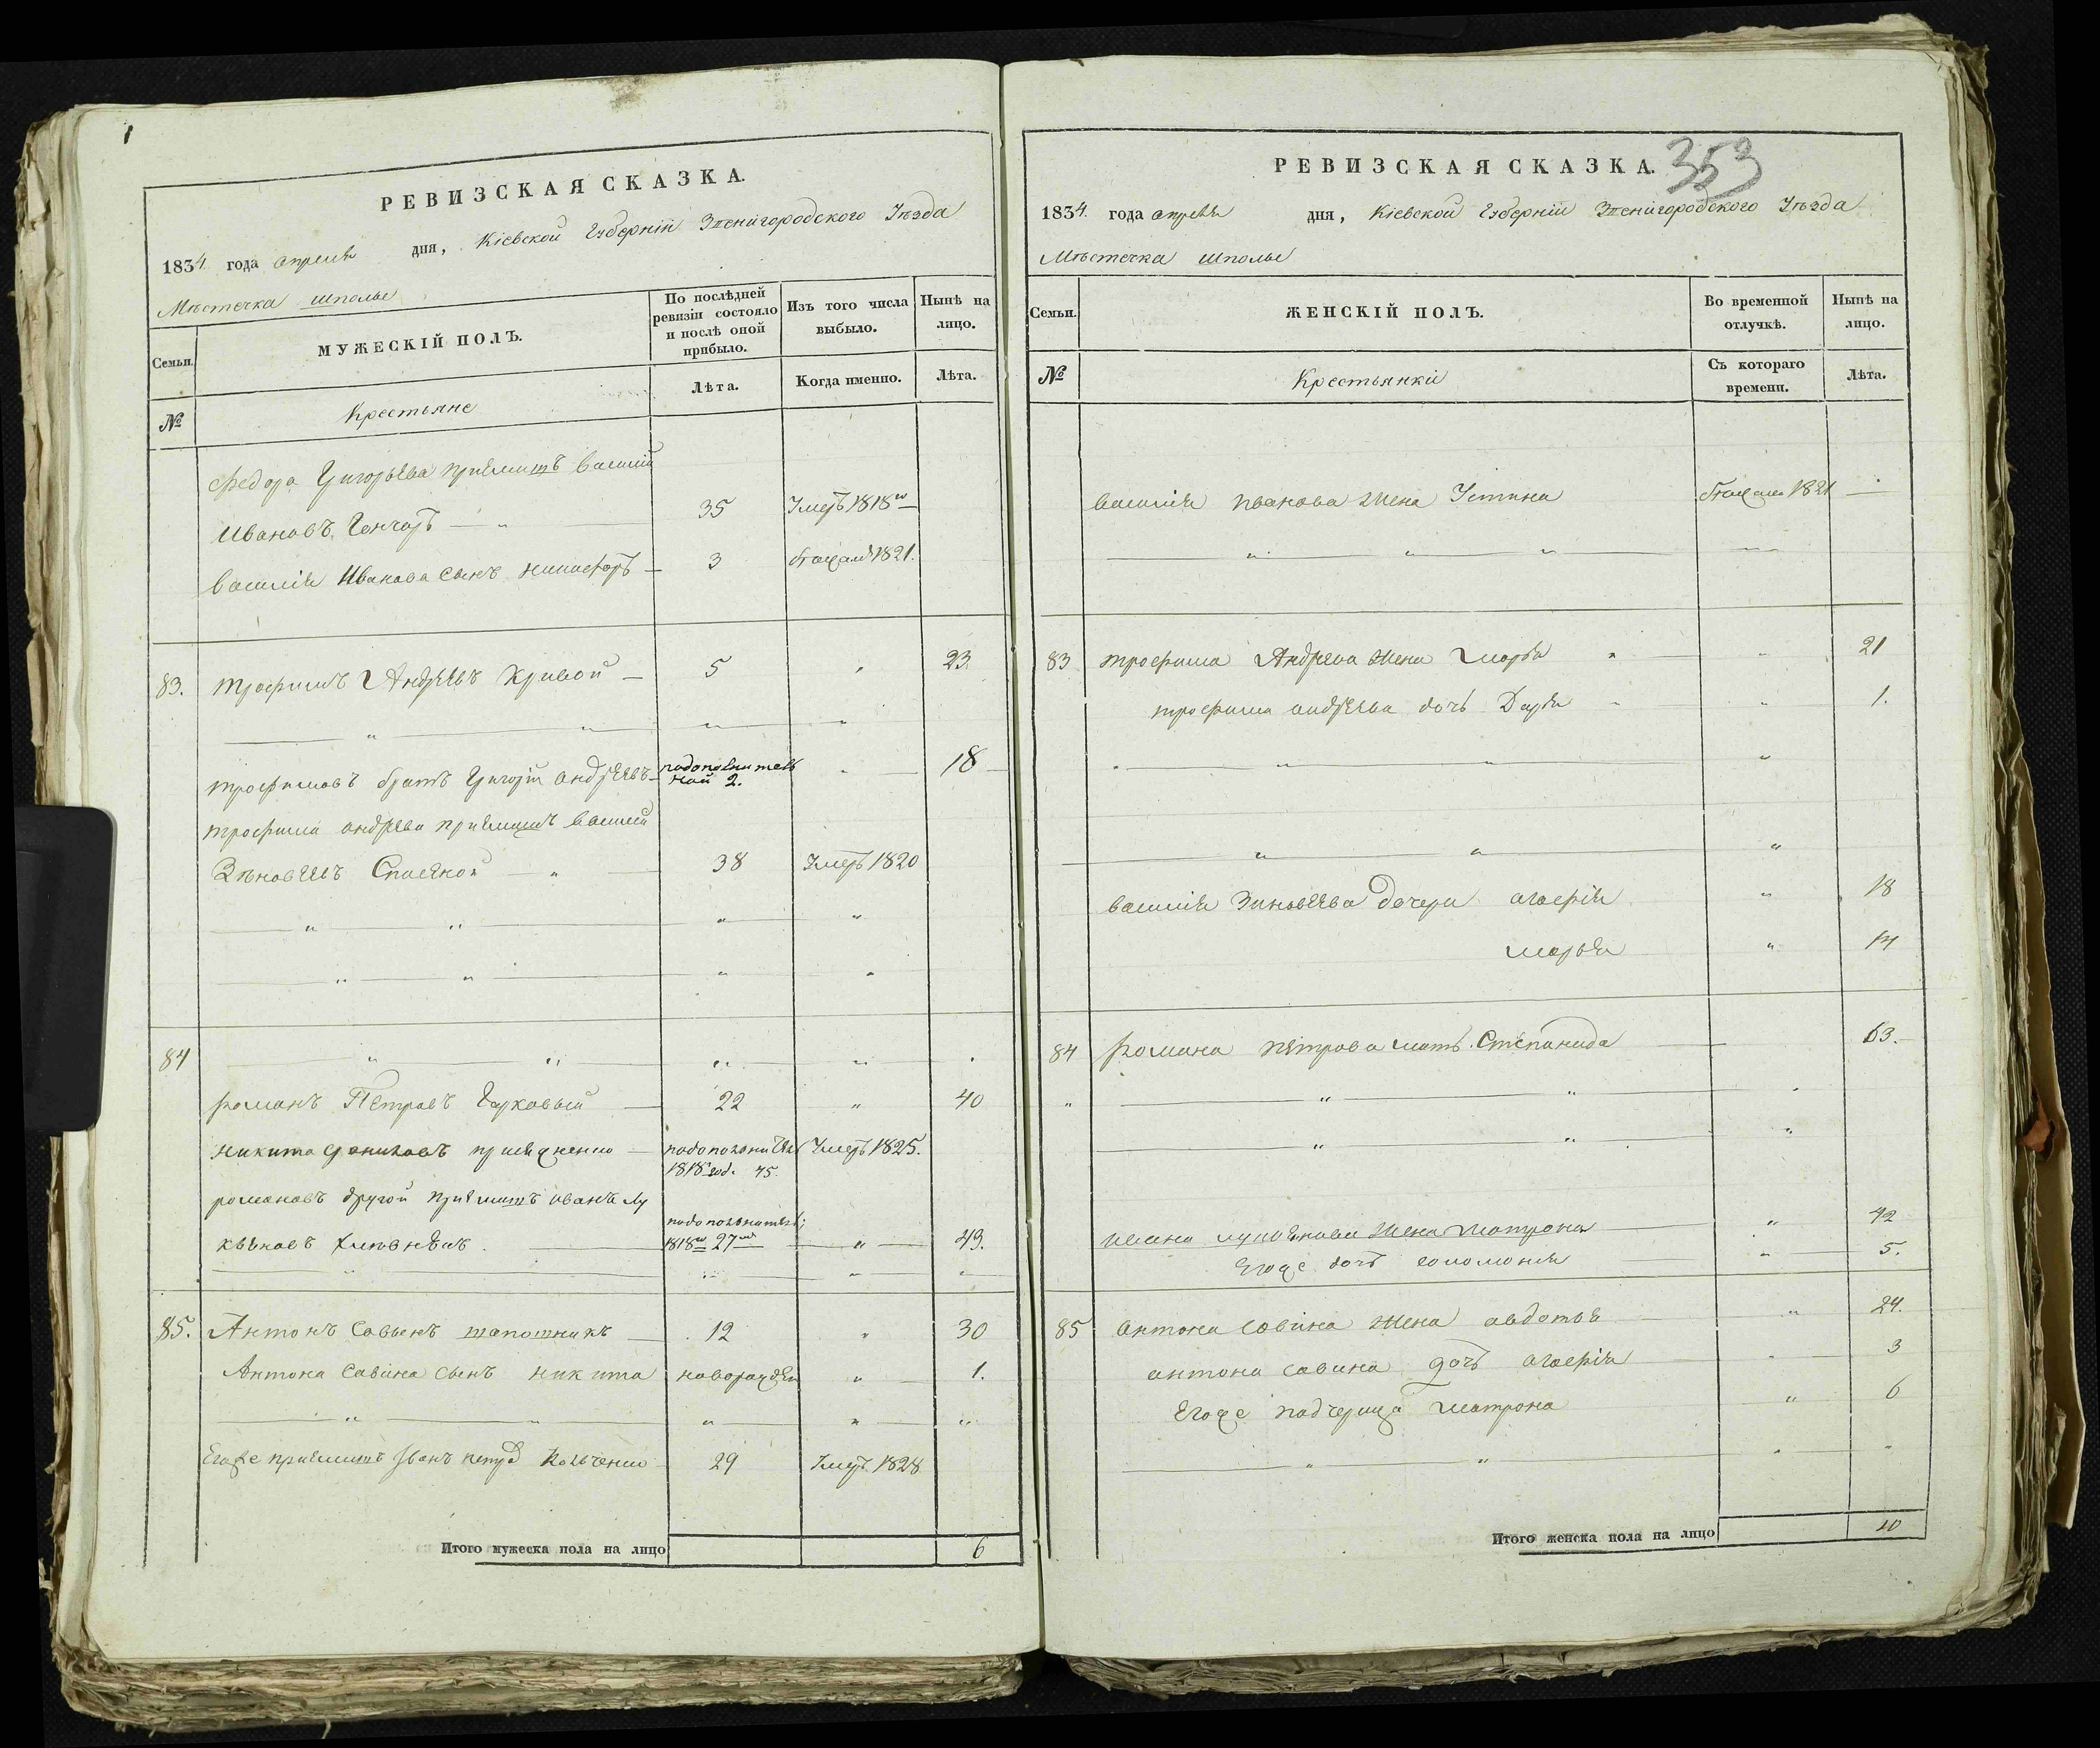 РЕВИЗСКАЯ СКАЗКА.
1834 года апреля дня, Кіевской Губерніи Звенигородского Уѣзда
Мѣстечка Шполы
Семьи.
МУЖЕСКІЙ ПОЛЪ.
По послѣдней ревизіи состояло и послѣ оной прибыло.
Изъ того числа выбыло.
Нынѣ на лицо.
№
Крестьяне
Лѣта.
Когда именно.
Лѣта.
Федора Григорьева приемышъ Василий
Ивановъ Гончаръ 35 Умеръ 1818го
Василія Иванова сынъ Никифоръ 3 1821.
83. Трофимъ Андреевъ Кривой 5 23
Трофимовъ братъ Григорій Андреевъ 2. 18
Трофима Андреева приемышъ Василий
38 Умеръ 1820
84
Романъ Петровъ 22 40
Никита Умеръ 1825.
1818 год. 45.
Романовъ другой приемышъ Иванъ Лу
1818го 27 49.
85. Антонъ Савинъ 12 30
Антона Савина сынъ Никита новорожден 1.
Егоже приемышъ Иванъ 29 Умеръ 1828
Итого мужеска пола на лицо 6
353
РЕВИЗСКАЯ СКАЗКА.
1834 года апреля дня, Кіевской Губерніи Звенигородского Уѣзда
Мѣстечка Шполы
Семьи.
ЖЕНСКІЙ ПОЛЪ.
Во временной отлучкѣ.
Нынѣ на лицо.
№
Крестьянки
Съ котораго времени.
Лѣта.
Василія Иванова жена Устина 1821
83 Трофима Андреева жена Марья 21
Трофима Андреева дочь Дарья 1.
Василія Зиновьева дочери Агафія 18
Марья
84 Романа Петрова мать Степанида 63.
Ивана жена Матрона 42
Егоже дочь Соломонія 5.
85 Антона Савина жена Авдотья 24.
Антона Савина дочь Агафія 3
Егоже падчерица Матрона 6
Итого женска пола на лицо 10